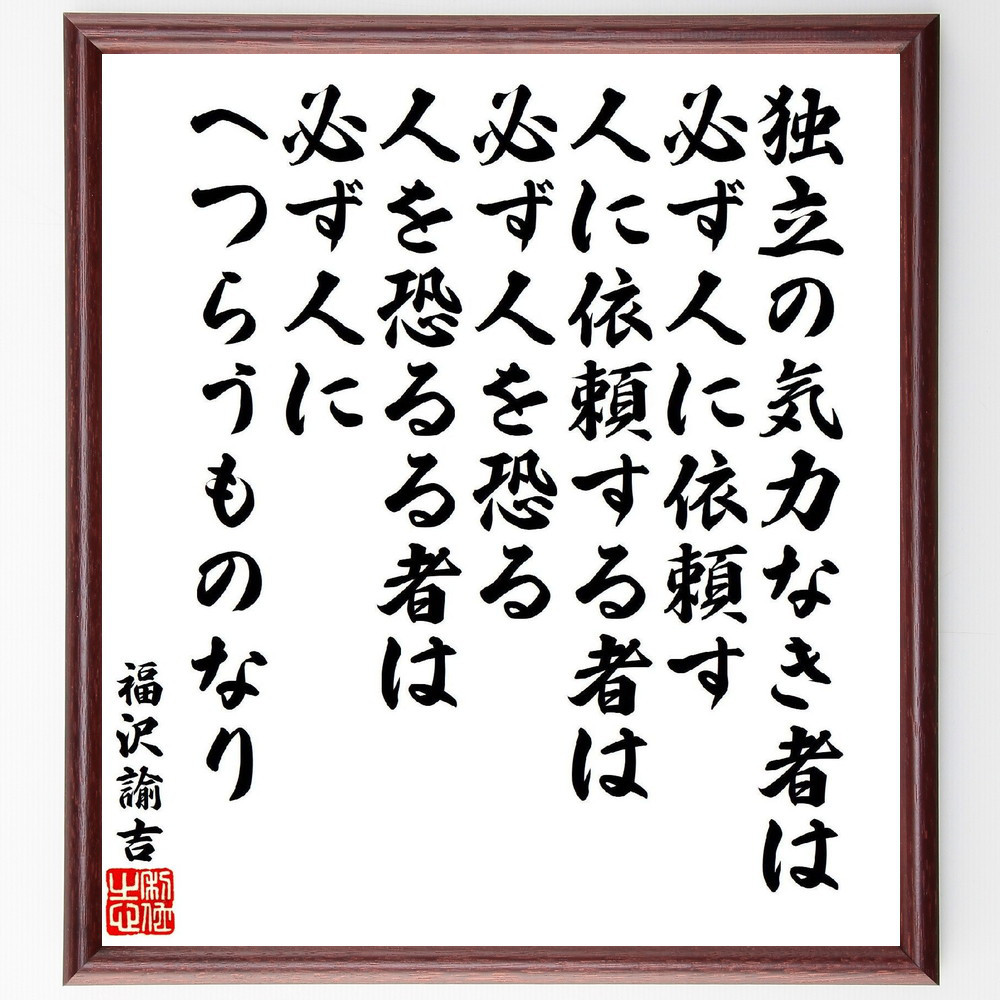 独立の気力なき者は
必ず人に依頼す
人に依頼する者は
必ず人を恐る
人を恐るる者は
必ず人に
へつらうものなり
福沢諭吉